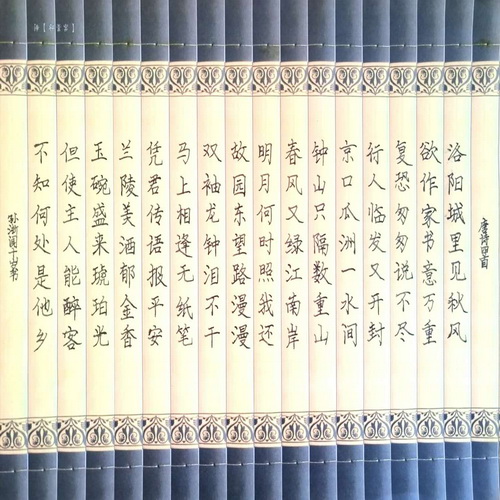 唐诗四首
洛阳城里见秋风
欲作家书意万重
复恐匆匆说不尽
行人临发又开封
京口瓜洲一水间
钟山只隔数重山
春风又绿江南岸
明月何时照我还
故园东望路漫漫
双袖龙钟泪不干
马上相逢无纸笔
凭君传语报平安
兰陵美酒郁金香
玉碗盛来琥珀光
但使主人能醉客
不知何处是他乡